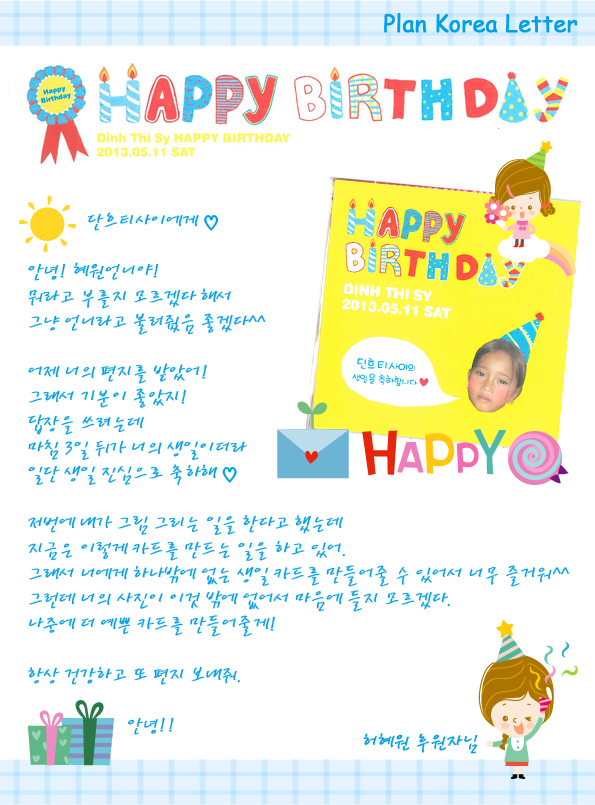 Plan Korea Letter
Happy Birthday
HAPPY BIRTHDAY
Dinh Thi Sy HAPPY BIRTHDAY
2013.05.11 SAT
단흐티사이에게 ♡
안녕! 혜원언니야!
뭐라고 부를지 모르겠다 해서
그냥 언니라고 불러줬음 좋겠다^^
어제 너의 편지를 받았어!
그래서 기분이 좋았지!
답장을 쓰려는데
마침 3일 뒤가 너의 생일이더라
일단 생일 진심으로 축하해 ♡
HAPPY
BIRTHDAY
DINH THI SY
2013.05.11 SAT
딘흐티사이의
생일을 축하합니다 ♥
HAPPY
저번에 내가 그림 그리는 일을 한다고 했는데
지금은 이렇게 카드를 만드는 일을 하고 있어.
그래서 너에게 하나밖에 없는 생일 카드를 만들어줄 수 있어서 너무 즐거워^^
그런데 너의 사진이 이것 밖에 없어서 마음에 들지 모르겠다.
나중에 더 예쁜 카드를 만들어줄게!
항상 건강하고 또 편지 보내줘.
안녕!!
허혜원 후원자님